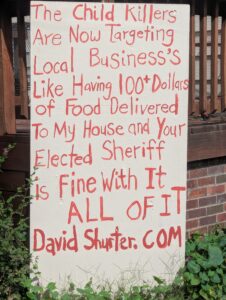 The Child Killers
Are Now Targeting
Local Business's
Like Having 100+Dollars
of Food Delivered
To My House and Your
Elected Sheriff
is Fine With It
ALL OF IT
David Shuster.COM